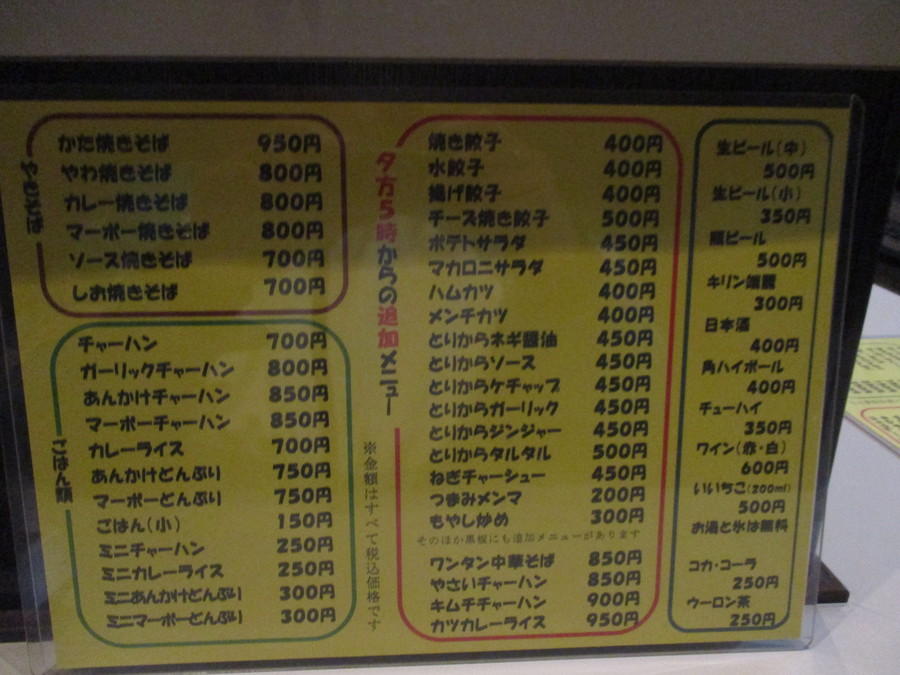 やきそば
かた焼きそば 950円
やわ焼きそば 800円
カレー焼きそば 800円
マーボー焼きそば 800円
ソース焼きそば 700円
しお焼きそば 700円
ごはん類
チャーハン 700円
ガーリックチャーハン 800円
あんかけチャーハン 850円
マーボーチャーハン 850円
カレーライス 700円
あんかけどんぶり 750円
マーボーどんぶり 750円
ごはん(小) 150円
ミニチャーハン 250円
ミニカレーライス 250円
ミニあんかけどんぶり 300円
ミニマーボーどんぶり 300円
※金額はすべて税込価格です
夕方5時からの追加メニュー
焼き餃子 400円
水餃子 400円
揚げ餃子 400円
チーズ焼き餃子 500円
ポテトサラダ 450円
マカロニサラダ 450円
ハムカツ 400円
メンチカツ 400円
とりからネギ醤油 450円
とりからソース 450円
とりからケチャップ 450円
とりからガーリック 450円
とりからジンジャー 450円
とりからタルタル 500円
ねぎチャーシュー 450円
つまみメンマ 200円
もやし炒め 300円
そのほか黒板にも追加メニューがあります
ワンタン中華そば 850円
やさいチャーハン 850円
キムチチャーハン 900円
カツカレーライス 950円
生ビール(中)
500円
生ビール(小)
350円
瓶ビール
500円
キリン端麗
300円
日本酒
400円
角ハイボール
400円
チューハイ
350円
ワイン(赤・白)
600円
いいちこ(200ml)
500円
お湯と氷は無料
コカ・コーラ
250円
ウーロン茶
250円